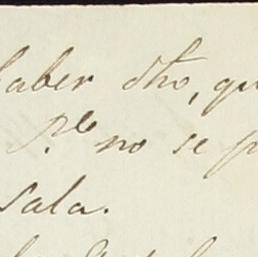 saber dho, qu
P.le no se p
sala.